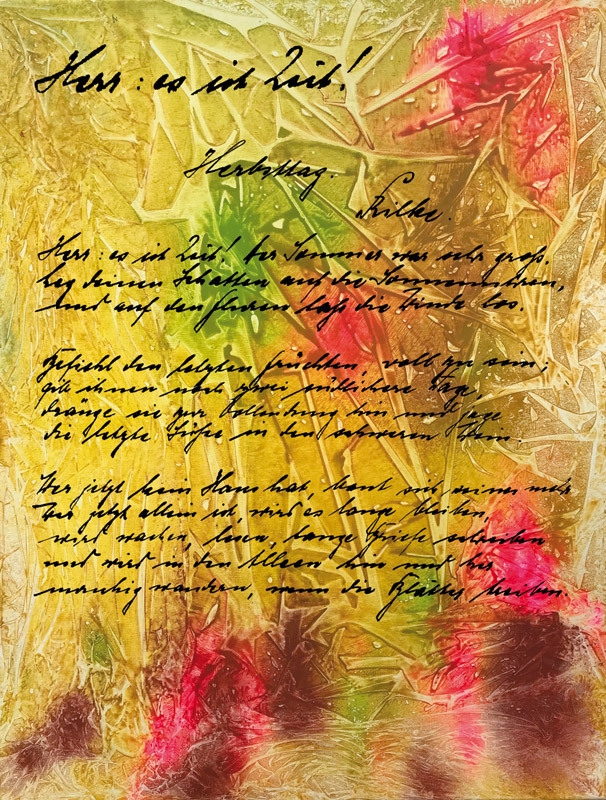 Herr: es ist Zeit!
Herbsttag.
Rilke.
Herr: es ist Zeit! Der Sommer war sehr groß.
Leg deinen Schatten auf die Sonnenuhren,
und auf den Fluren laß die Winde los.
Befiehl den letzten Früchten, voll zu sein;
gib ihnen noch zwei südlichere Tage,
dränge sie zur Vollendung hin und jage
die letzte Süße in den schweren Wein.
Wer jetzt kein Haus hat, baut sich keines mehr.
Wer jetzt allein ist, wird es lange bleiben,
wird wachen, lesen, lange Briefe schreiben
und wird in den Alleen hin und her
unruhig wandern, wenn die Blätter treiben.